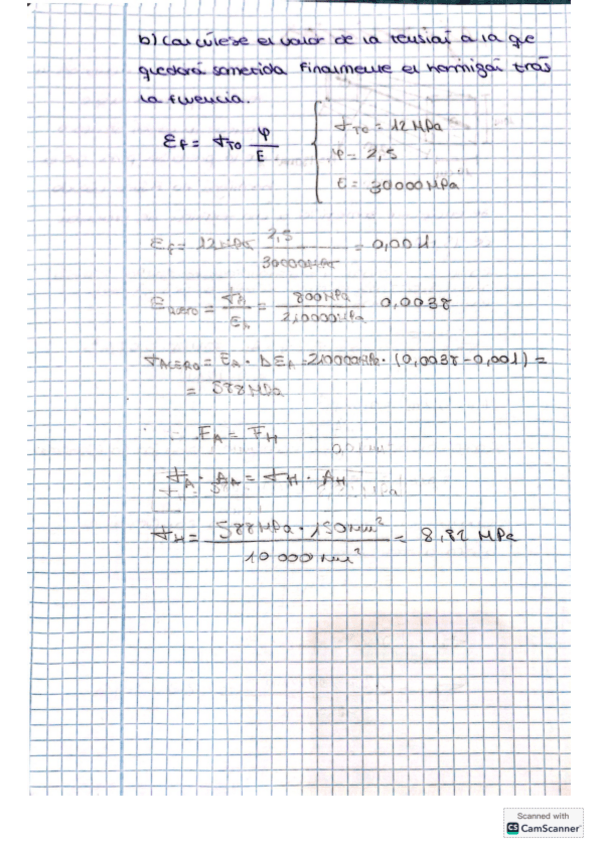 b) Calcúlese el valor de la tensión a la que
quedará sometida finalmente el hormigón trás
la fluencia.
εf = σTO φ/E { σTO = 12 MPa
φ = 2,5
E = 30000 MPa
εf = 12 MPa 2,5/30000 MPa = 0,001
εacero = σA/EA = 800 MPa/210000 MPa 0,0038
σACERO = EA · ΔEA = 210000 MPa · (0,0038 - 0,001) =
= 588 MPa
FA = FH
σA · AA = σH · AH
σH = 588 MPa · 150 mm²/10 000 mm² = 8,82 MPa
Scanned with
CS CamScanner